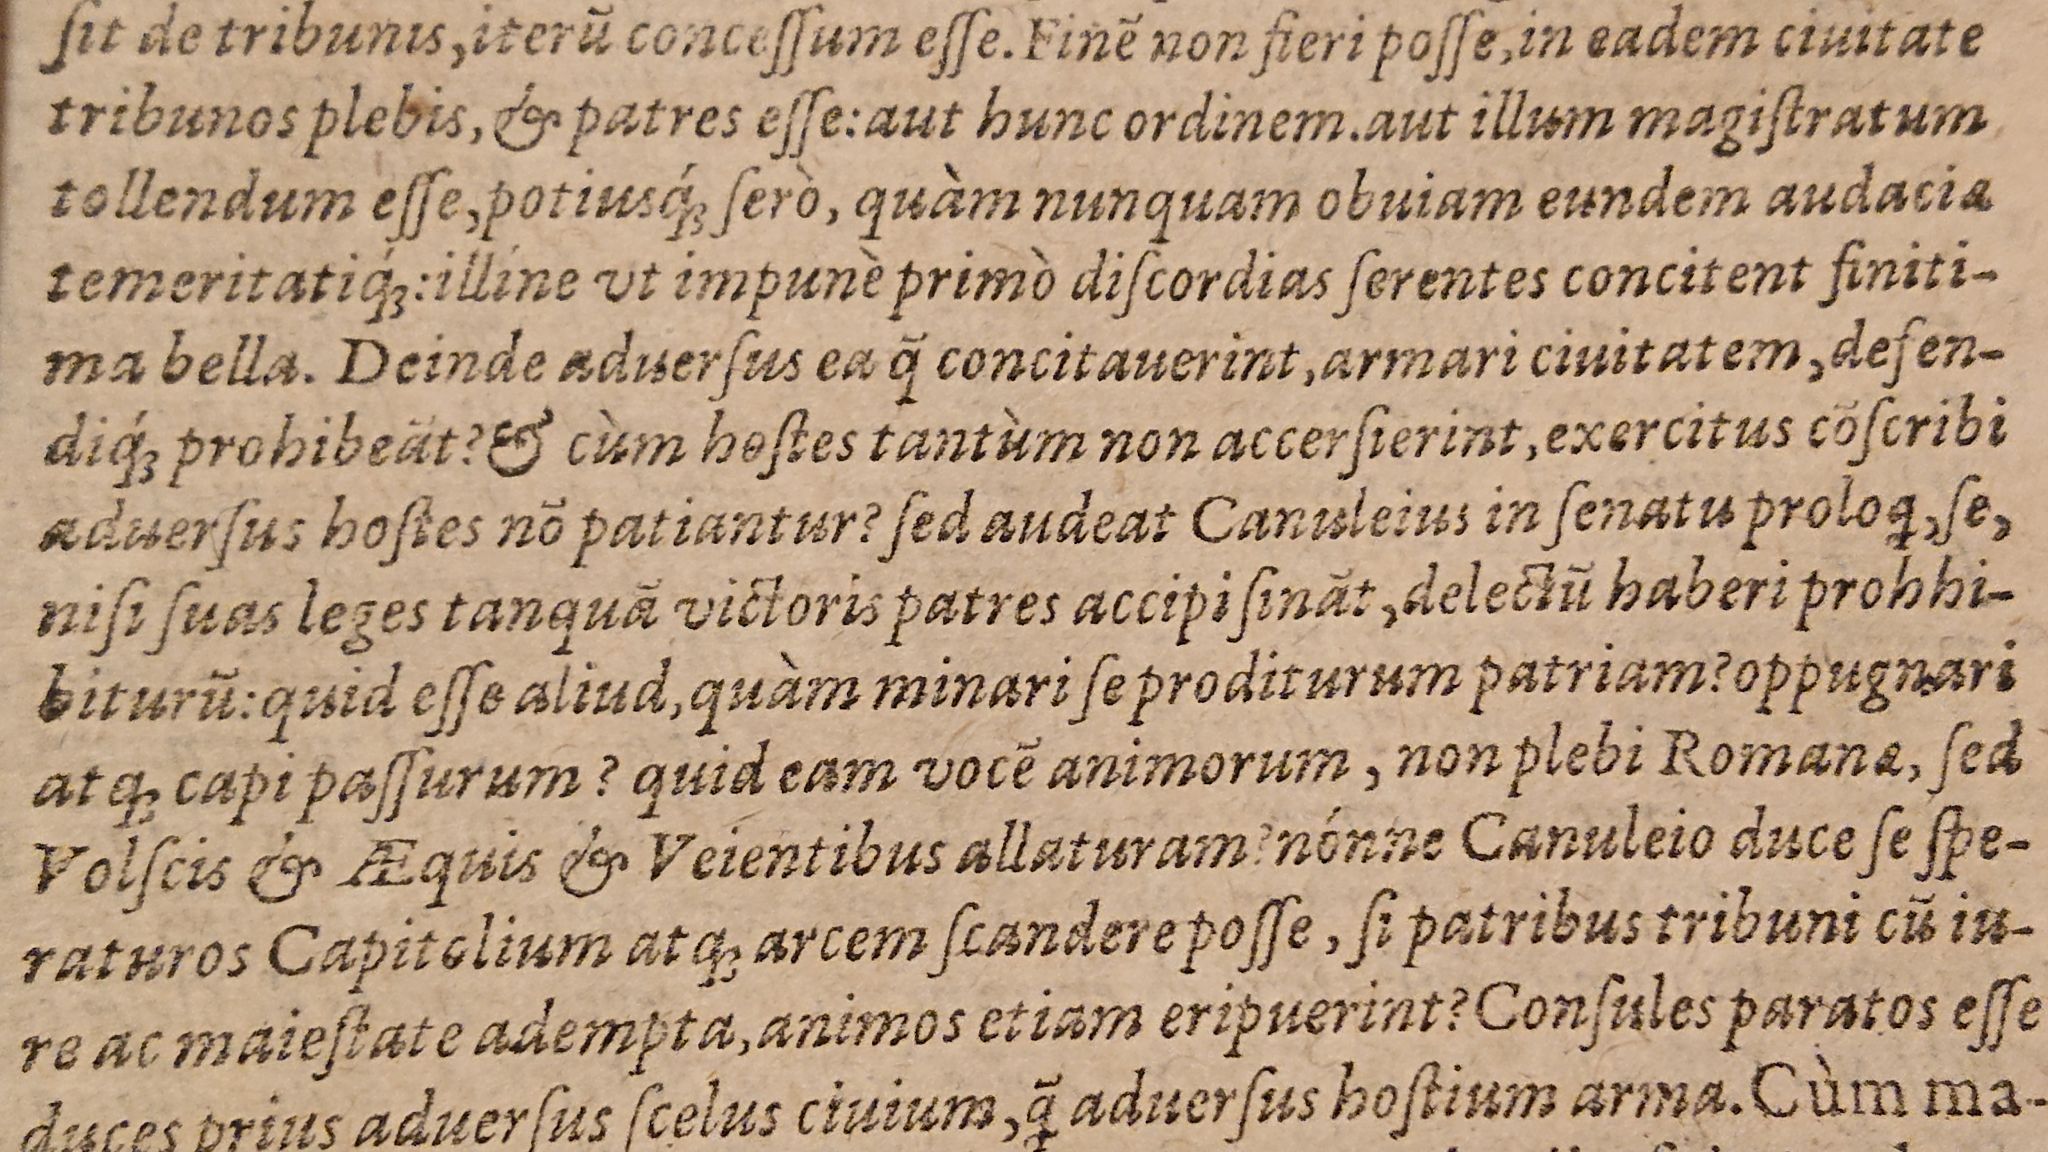 ſit de tribunis, iterũ conceſſum eſſe. Finẽ non fieri poſſe, in eadem ciuitate
tribunos plebis, & patres eſſe: aut hunc ordinem. aut illum magiſtratum
tollendum eſſe, potiusq́ꝫ ſerò, quàm nunquam obuiam eundem audacia
temeritatiq́ꝫ: illíne vt impunè primò diſcordias ſerentes concitent finiti-
ma bella. Deinde aduerſus ea q̃ concitauerint, armari ciuitatem, defen-
diq́ꝫ prohibeãt? & cùm hoſtes tantùm non accerſierint, exercitus cõſcribi
aduerſus hoſtes nõ patiantur? ſed audeat Canuleius in ſenatu proloq, ſe,
niſi ſuas leges tanquã victoris patres accipi ſinãt, delectũ haberi prohhi-
biturũ: quid eſſe aliud, quàm minari ſe proditurum patriam? oppugnari
atqꝫ capi paſſurum? quid eam vocẽ animorum, non plebi Romana, ſed
Volſcis & Æquis & Veientibus allaturam? nónne Canuleio duce ſe ſpe-
raturos Capitolium atqꝫ arcem ſcandere poſſe, ſi patribus tribuni cũ iu-
re ac maieſtate adempta, animos etiam eripuerint? Conſules paratos eſſe
duces prius aduerſus ſcelus ciuium, q̃ aduerſus hoſtium arma. Cùm ma-